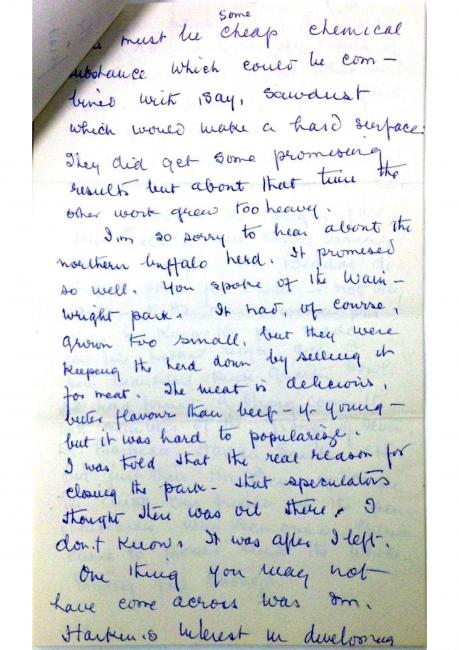 some
must be cheap chemical
substance which could be com-
bined with, say, sawdust
which would make a hard surface.
They did get some promising
results but about that time the
other work grew too heavy.
I'm so sorry to hear about the
northern buffalo herd. It promised
so well. You spoke of the Wain-
wright park. It had, of course,
grown too small, but they were
keeping the herd down by selling it
for meat. The meat is delicious,
better flavour than beef - if young -
but it was hard to popularize.
I was told that the real reason for
closing the park - that speculators
thought there was oil there. I
don't know. It was after I left.
One thing you may not
have come across was Mr.
Harkin's interest in developing